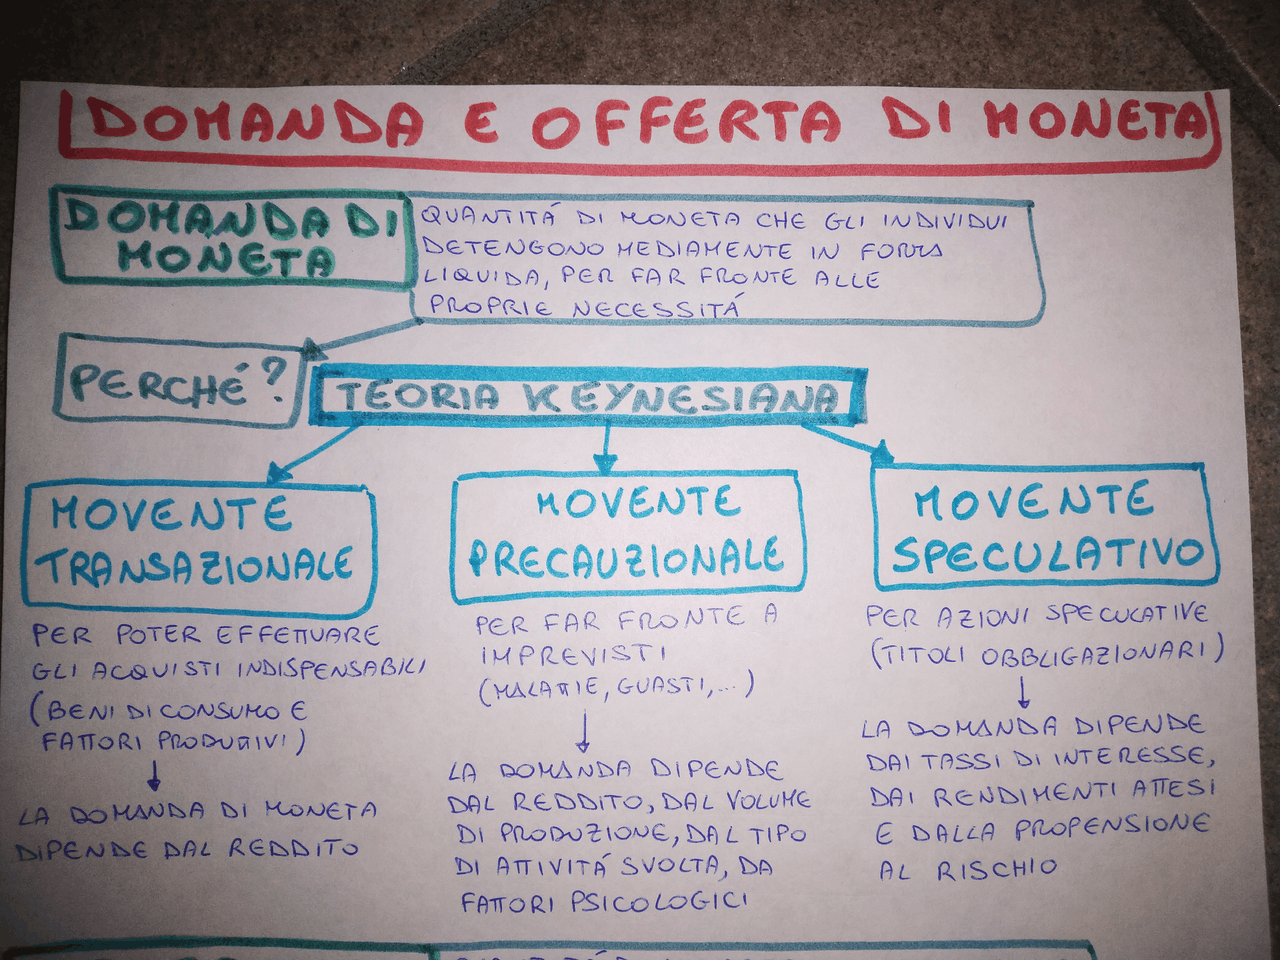 DOMANDA E OFFERTA DI MONETA
DOMANDA DI
MONETA
QUANTITÁ DI MONETA CHE GLI INDIVIDUI
DETENGONO MEDIAMENTE IN FORMA
LIQUIDA, PER FAR FRONTE ALLE
PROPRIE NECESSITÁ
PERCHÉ?
TEORIA KEYNESIANA
MOVENTE
TRANSAZIONALE
PER POTER EFFETTUARE
GLI ACQUISTI INDISPENSABILI
(BENI DI CONSUMO E
FATTORI PRODUTTIVI)
LA DOMANDA DI MONETA
DIPENDE DAL REDDITO
MOVENTE
PRECAUZIONALE
PER FAR FRONTE A
IMPREVISTI
(MALATTIE, GUASTI,...)
LA DOMANDA DIPENDE
DAL REDDITO, DAL VOLUME
DI PRODUZIONE, DAL TIPO
DI ATTIVITÁ SVOLTA, DA
FATTORI PSICOLOGICI
MOVENTE
SPECULATIVO
PER AZIONI SPECULATIVE
(TITOLI OBBLIGAZIONARI)
LA DOMANDA DIPENDE
DAI TASSI DI INTERESSE,
DAI RENDIMENTI ATTESI
E DALLA PROPENSIONE
AL RISCHIO